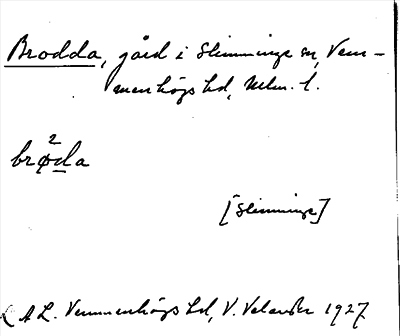 Brodda, gård i Slimminge sn, Vem-
menhögs hd, Mlm. l.
brø²d̲a
[Slimminge]
L A L. Vemmenhögs hd, V. Velander 1927